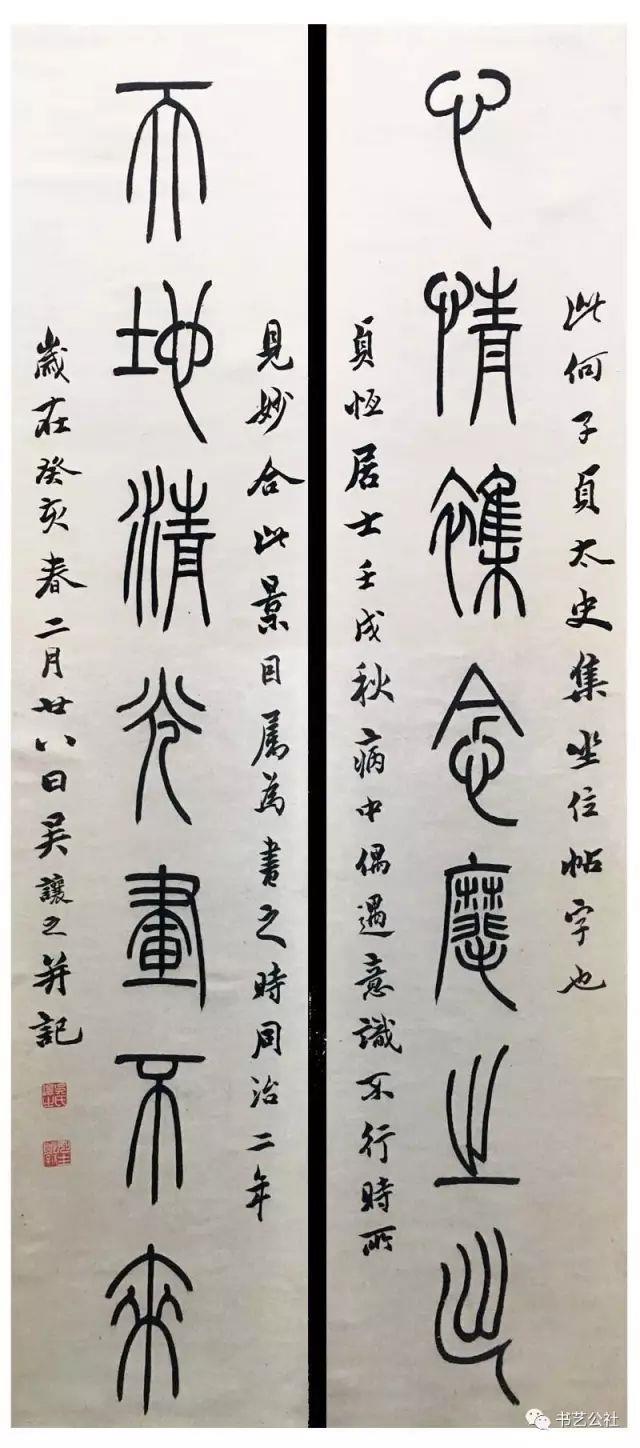 心情雜念麾之出
此何子貞太史集坐位帖字也
貞恆居士壬戌秋病中偶遇意識不行時所
見妙合此景目屬為書之時同治二年
天地清光畫不來
歲在癸亥春二月廿八日吳讓之并記
书艺公社